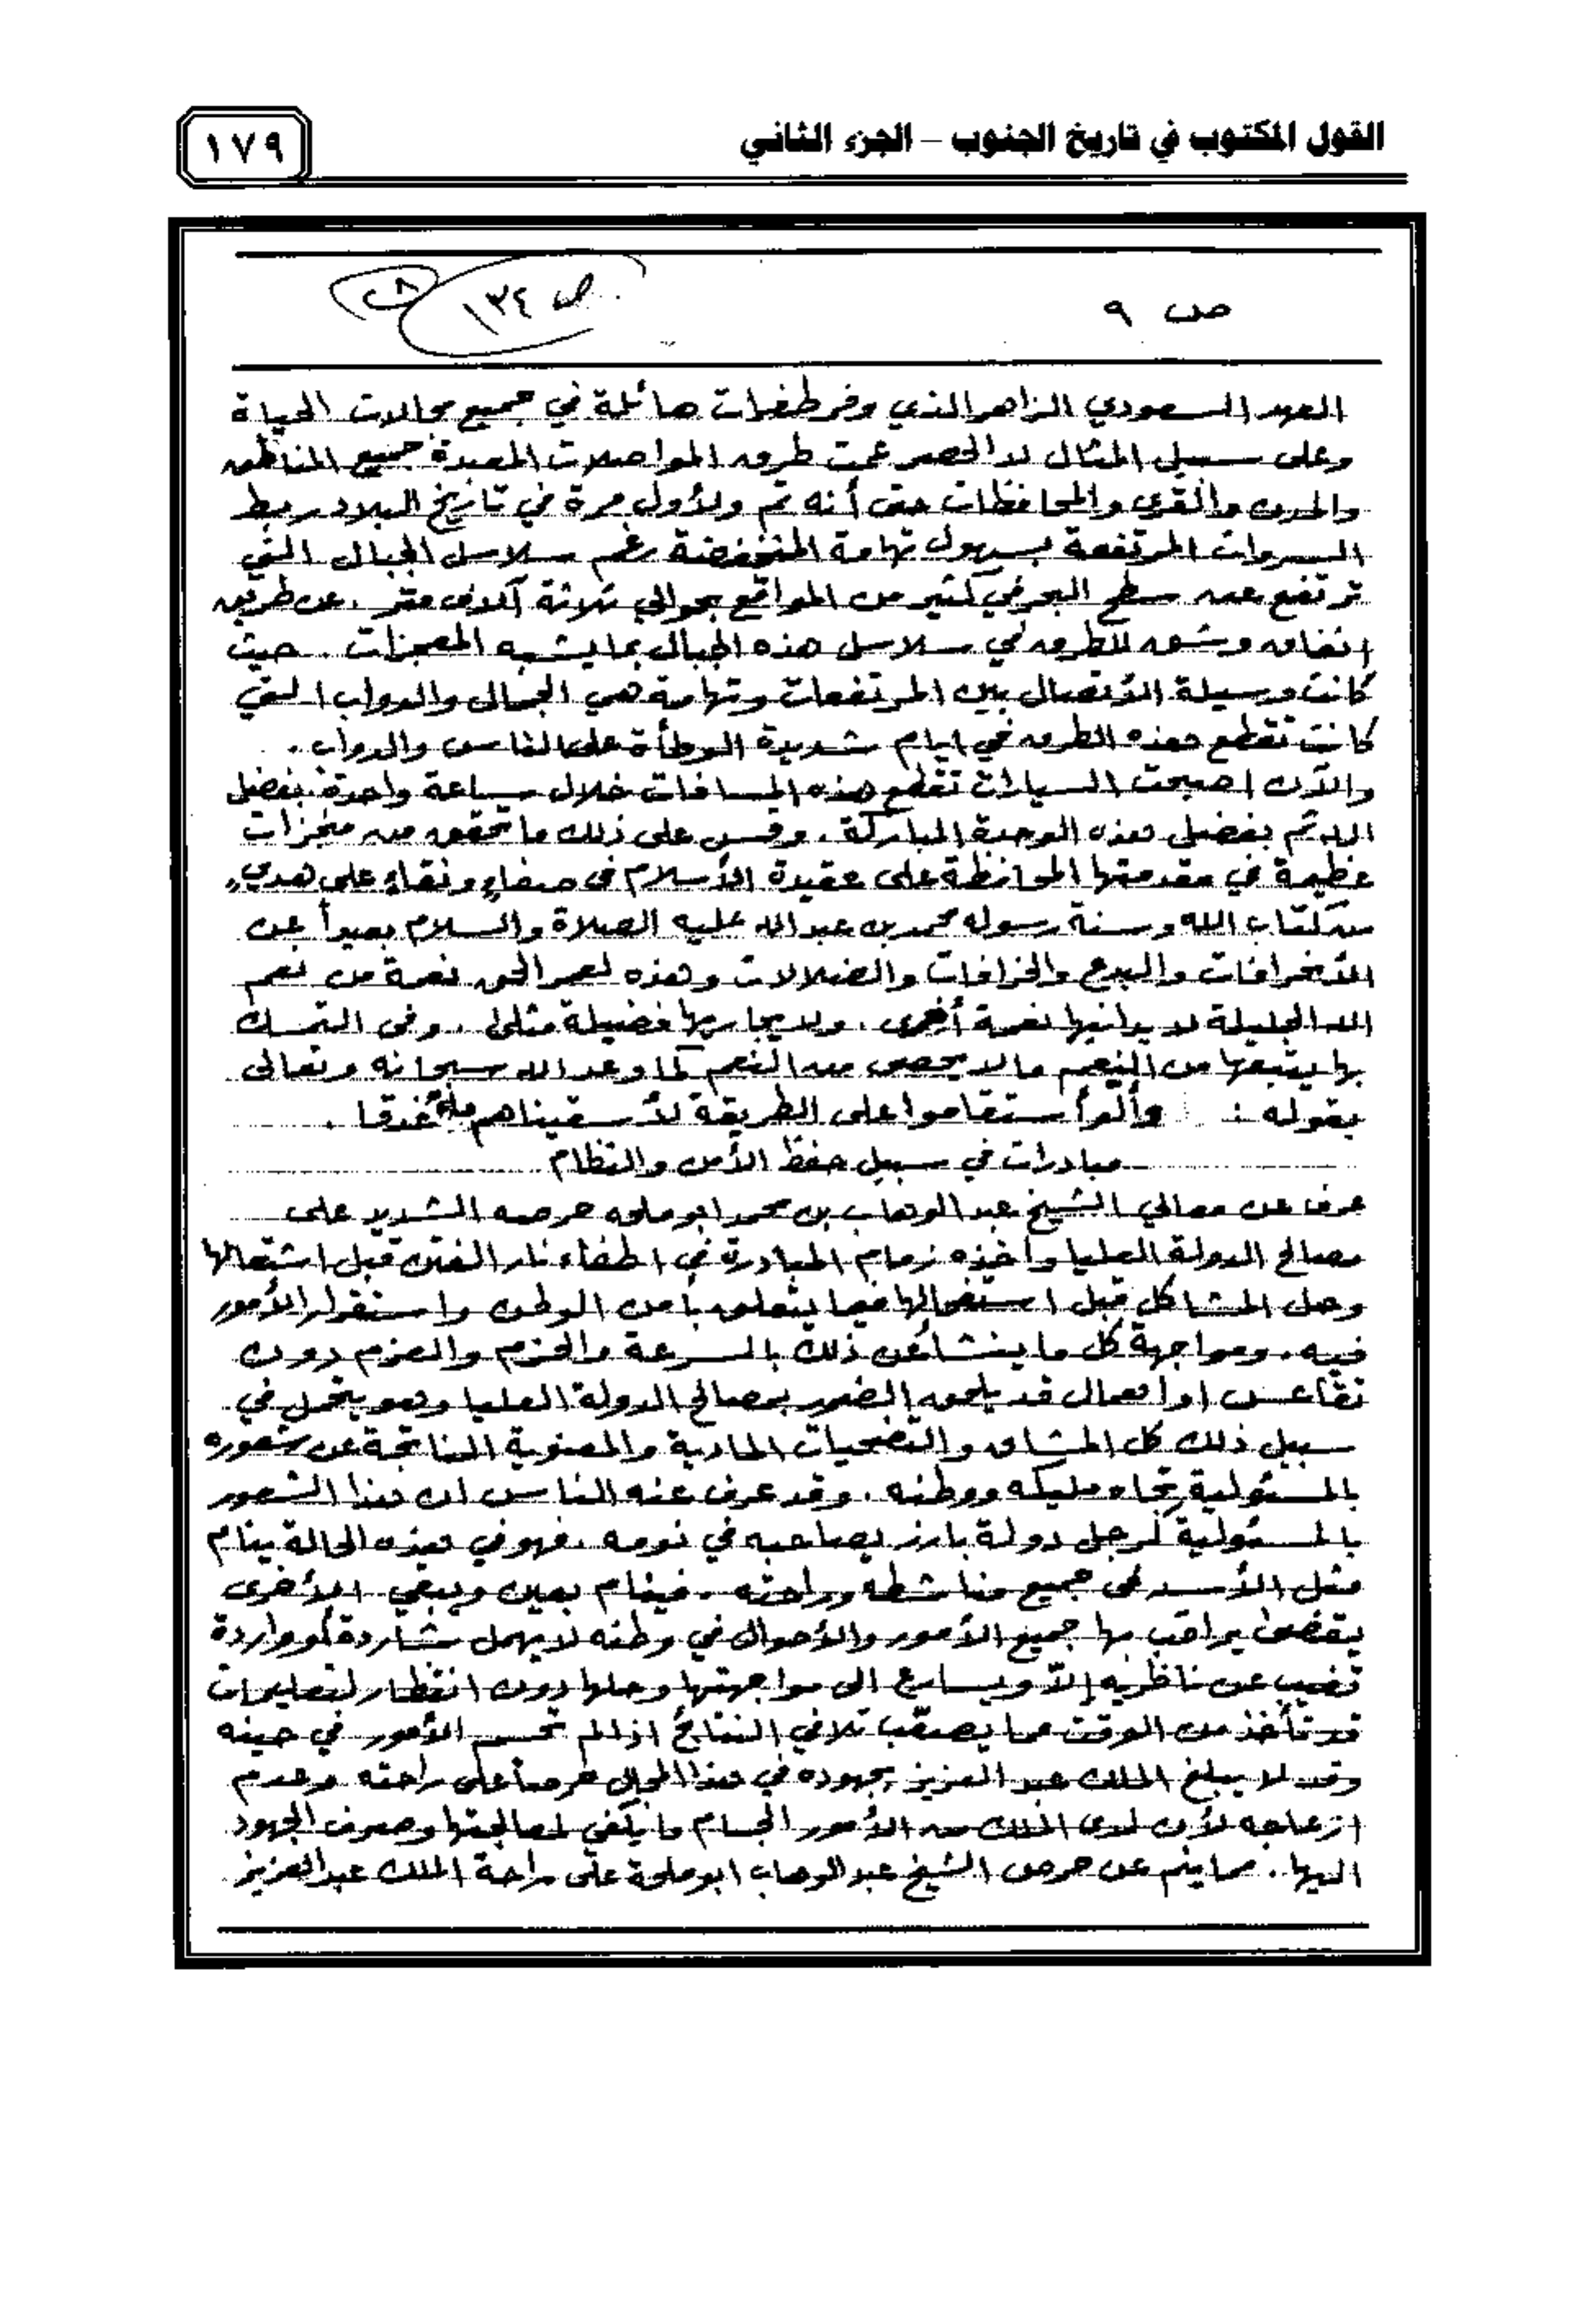 القول المكتوب في تاريخ الجنوب – الجزء الثاني
١٧٩
ص ٩
ص ١٣٤
العهد السعودي الزاهر الذي وفر طفرات هائلة في جميع مجالات الحياة
وعلى سبيل المثال لا الحصر عمت طرق المواصلات المعبدة جميع المناطق
والمدن والقرى والمحافظات حتى أنه تم ولأول مرة في تاريخ البلاد ربط
السروات المرتفعة بسهول تهامة المنخفضة رغم سلاسل الجبال التي
ترتفع عن سطح البحر في كثير من المواقع بحوالي ثلاثة آلاف متر . عن طريق
انفاق وشق الطرق في سلاسل هذه الجبال بما يشبه المعجزات . حيث
كانت وسيلة الأتصال بين المرتفعات وتهامة هي الجمال والدواب التي
كانت تقطع هذه الطرق في ايام شديدة الوطأة على الناس والدواب .
والآن اصبحت السيارات تقطع هذه المسافات خلال ساعة واحدة بفضل
الله ثم بفضل هذه الوحدة المباركة . وقس على ذلك ما تحقق من منجزات
عظيمة في مقدمتها المحافظة على عقيدة الأسلام في صفاءٍ ونقاءٍ على هدي
من كتاب الله وسنة رسوله محمد بن عبدالله عليه الصلاة والسلام بعيداً عن
الأنحرافات والبدع والخرافات والضلالات وهذه لعمر الحق نعمة من نعم
الله الجليلة لا يدانيها نعمة أخرى . ولا يجاريها فضيلة مثلى . وفي التمسك
بها يتبعها من النعيم ما لا يحصى من النعم كما وعد الله سبحانه وتعالى
بقوله : وألو أستقاموا على الطريقة لأسقيناهم ماءً غدقا .
مبادرات في سبيل حفظ الأمن والنظام
عرف عن معالي الشيخ عبد الوهاب بن محمد ابو ملحه حرصه الشديد على
مصالح الدولة العليا وأخذه زمام المبادرة في اطفاء نار الفتن قبل اشتعالها
وحل المشاكل قبل استفحالها فيما يتعلق بأمن الوطن واستقرار الأمور
فيه . ومواجهة كل ما ينشأ عن ذلك بالسرعة والحزم والعزم دون
تقاعس او اهمال قد يلحق الضرر بمصالح الدولة العليا وهو يتحمل في
سبيل ذلك كل المشاق والتضحيات المادية والمعنوية الناتجة عن شعوره
بالمسئولية تجاه مليكه ووطنه . وقد عرف عنه الناس ان هذا الشعور
بالمسئولية كرجل دولة بارز يصاحبه في نومه . فهو في هذه الحالة ينام
مثل الأسد في جميع مناشطه وراحته . فينام بعين ويبقي الأخرى
يقضى يراقب بها جميع الأمور والأحوال في وطنه لا يهمل شاردة أو واردة
تغيب عن ناظريه إلاّ ويسارع الى مواجهتها وحلها دون انتظار لتعليمات
قد تأخذ من الوقت مما يصعّب تلافي النتائج اذا لم تحسم الأمور في حينه
وقد لا يبلغ الملك عبد العزيز بجهوده في هذا المجال حرصاً على راحته وعدم
ازعاجه لأن لدى الملك من الأمور الجسام ما يكفي لمعالجتها وصرف الجهود
اليها . مما ينم عن حرص الشيخ عبد الوهاب ابو ملحة على راحة الملك عبد العزيز